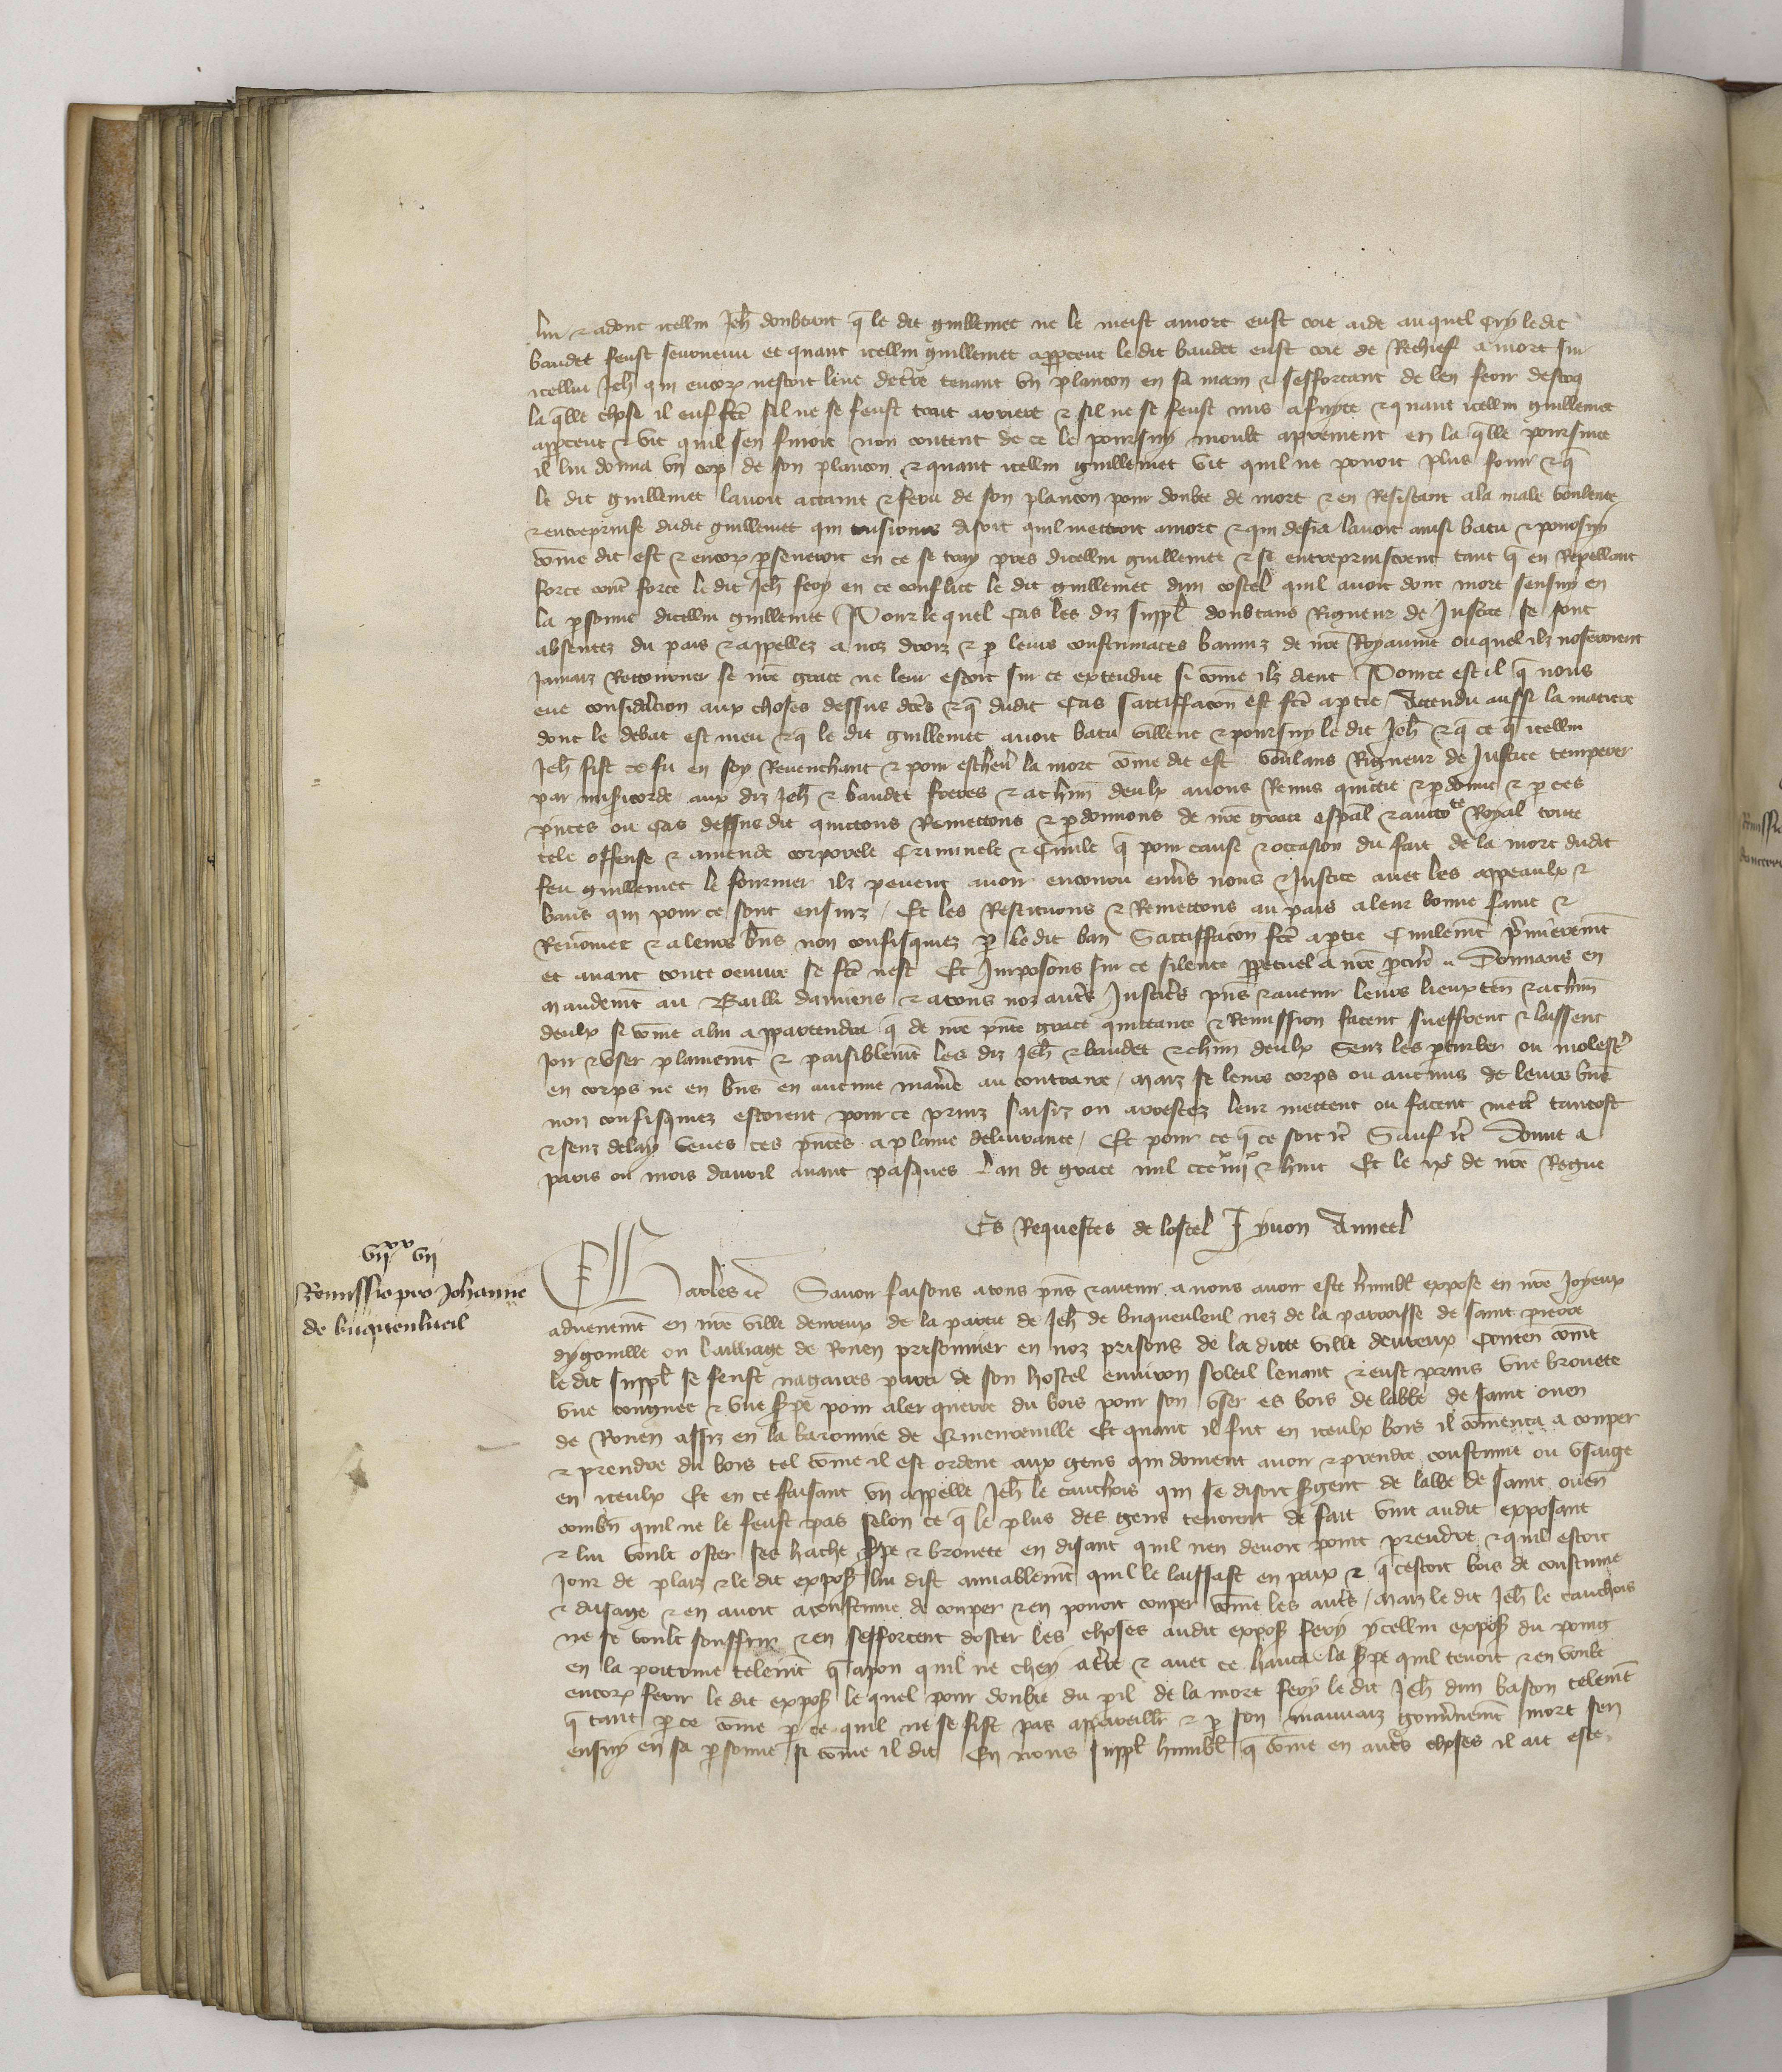 lui & adonc icellui Jeh̄ doubtant q̄ le dit guillemet ne le meist amort eust crie aide auquel cry ledit
baudet feust seurvenu et quant icellui guillemet appceut ledit baudet eust crie de Rechief a mort sur
icellui Jeh̄ qui encor nestoit leve det̄re tenant un plancon en sa main & sefforcant de len ferir destoq
la q̄lle chose il eust fc̄e sil ne se feust trait arriere & sil ne se feust mis afuyte & quant icellui guillemet
appceut & vit quil sen fuioit non content de ce le poursuy moult aprement en la q̄lle poursuite
il lui donna un cop de son plancon & quant icellui guillemet vit quil ne povoit plus fouir & q̄
le dit guillemet lavoit attaint & feru de son plancon pour doubte de mort & en Resistant ala male voulente
& entreprinse dudit guillemet qui tousiours disoit quil mettroit amort & qui desia lavoit ainsi batu & poursuy
com̄e dit est & encor pseveroit en ce se tray pres dicellui guillemet & se entreprinstrent tant q̄ en Repellant
force cont̄ force le dit Jeh̄ fery en ce conflict le dit guillemet dun costel quil avoit dont mort sensuy en
la psonne dicellui guillemet Pour le quel cas les diz suppl̄ doubtans Rigueur de Justice se sont
absentez du pais & appellez a noz droiz & p leurs contumaces baniz de nr̄e Royaume ouquel ilz noseroient
Jamaiz Retourner se nr̄e grace ne leur estoit sur ce extendue si com̄e ilz dient Pource est il q̄ nous
eue considāciōn aux choses dessus dc̄es & q̄ dudit cas sattiffacon est fc̄e aptie / Attendu aussi la matiere
dont le debat est meu & q̄ le dit guillemet avoit batu villene & poursuy le dit Jeh̄ & q̄ ce q̄ icellui
Jeh̄ fist ce fu en soy Revenchant & pour eschev̄ la mort com̄e dit est voulans Rigueur de Justice temperer
par misericorde aux diz Jeh̄ & baudet freres & achūn deulx avons Remis quittie & pdonne & p ces
pn̄tes ou cas dessus dit quittons Remettons & pdonnons de nr̄e grace espāl & auctōte Royal toute
tele offense & amende corporele Criminele & Civile q̄ pour cause & occasion du fait de la mort dudit
feu guillemet le fournier ilz pevent avoir encouru env̄s nous & Justice avec les appeaulx &
bans qui pour ce sont ensuiz / Et les Restituons & Remettons au pais aleur bonne fame &
Renom̄ee & aleurs bn̄s non confisquiez p le dit ban Sattiffacon fc̄e aptie Civilem̄t p̄mierem̄t
et avant toute oeuvre se fc̄e nest Et Imposons sur ce silence ppetuel a nr̄e pcur̄ Donnans en
Mandem̄t au Bailli damiens & atous noz aut̄s Justic̄s pn̄s & avenir leurs lieuxten̄ & achūn
deulx si com̄e alui appartendra q̄ de nr̄e pn̄te grace quittance & Remission facent sueffrent & laissent
Joir & user plainem̄t & paisiblem̄t les diz Jeh̄ & baudet & chūn deulx Senz les pturber ou molest̄
en corps ne en bn̄s en aucune manīe au contraire / Maiz se leurs corps ou aucuns de leurs bn̄s
non confisquiez estoient pource prins saisiz ou arrestez leur mettent ou facent mett̄ tantost
& senz delay veues ces pn̄tes a plaine delivrance / Et pour ce q̄ ce soit &c̄ Sauf &c̄ Donne a
paris ou mois davril avant pasques Lan de grace mil ccc iiiixx & huit Et le ixe de nr̄e Regne
Es Requestes de lostel J yvon Anneel
viixx vij
Remissio pro Johanne
de buqueulueil
Charles &c̄ Savoir faisons atous pn̄s & avenir a nous avoir este humbl̄ expose en nr̄e Joyeux
advenem̄t en nr̄e ville deureux de la partie de Jeh̄ de buqueuleul nez de la parroisse de saint pierre
dygouville ou bailliage de Rouen prisonnier en noz prisons de la dicte ville deureux Conten̄ com̄e
le dit suppl̄ se feust nagaires parti de son hostel environ soleil levant & eust prins une brouete
une congnee & une spe pour aler querre du bois pour son user es bois de labbe de saint ouen
de Rouen assiz en la baronnie de Crmentreville Et quant il fut en iceulx bois il com̄enca a couper
& prendre du bois tel com̄e il est ordene aux gens qui doivent avoir & prendre coustume ou usaige
en iceulx Et en ce faisant un appelle Jeh̄ le cauchois qui se disoit sgent de labbe de saint ouen
combn̄ quil ne le feust pas selon ce q̄ le plus des gens tenoient de fait vint audit exposant
& lui voult oster ses hache spe & brouete en disant quil nen devoit point prendre & quil estoit
Jour de plaiz & le dit expos̄ lui dist amiablem̄t quil le laissast en paix & q̄ cestoit bois de coustume
& dusage & en avoit acoustume de couper & en povoit couper com̄e les aut̄s / Maiz le dit Jeh̄ le cauchois
ne se voult souffrir & en sefforcent doster les choses audit expos̄ fery ycellui expos̄ du poing
en la poitrine telem̄t q̄ apou quil ne chey at̄re & avec ce hauca la spe quil tenoit & en voult
encor ferir le dit expos̄ le quel pour doubte du pil de la mort fery le dit Jeh̄ dun baston telem̄t
q̄ tant p ce com̄e p ce quil ne se fist pas appareill̄ & p son mauvaiz gouv̄nem̄t mort sen
ensuy en sa psonne si com̄e il dit En nous suppl̄ humbl̄ q̄ com̄e en aut̄s choses il ait este